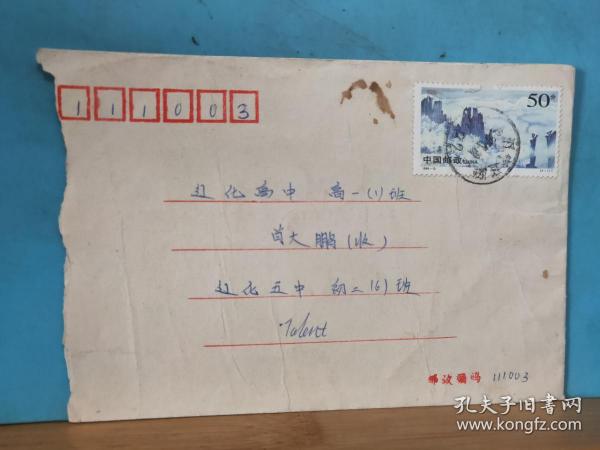 111003
50分
中国邮政 CHINA
辽化高中 高一(1)班
肖大鹏(收)
辽化五中 初二(6)班
Talent
邮政编码 111003
孔夫子旧书网
www.kongfz.com